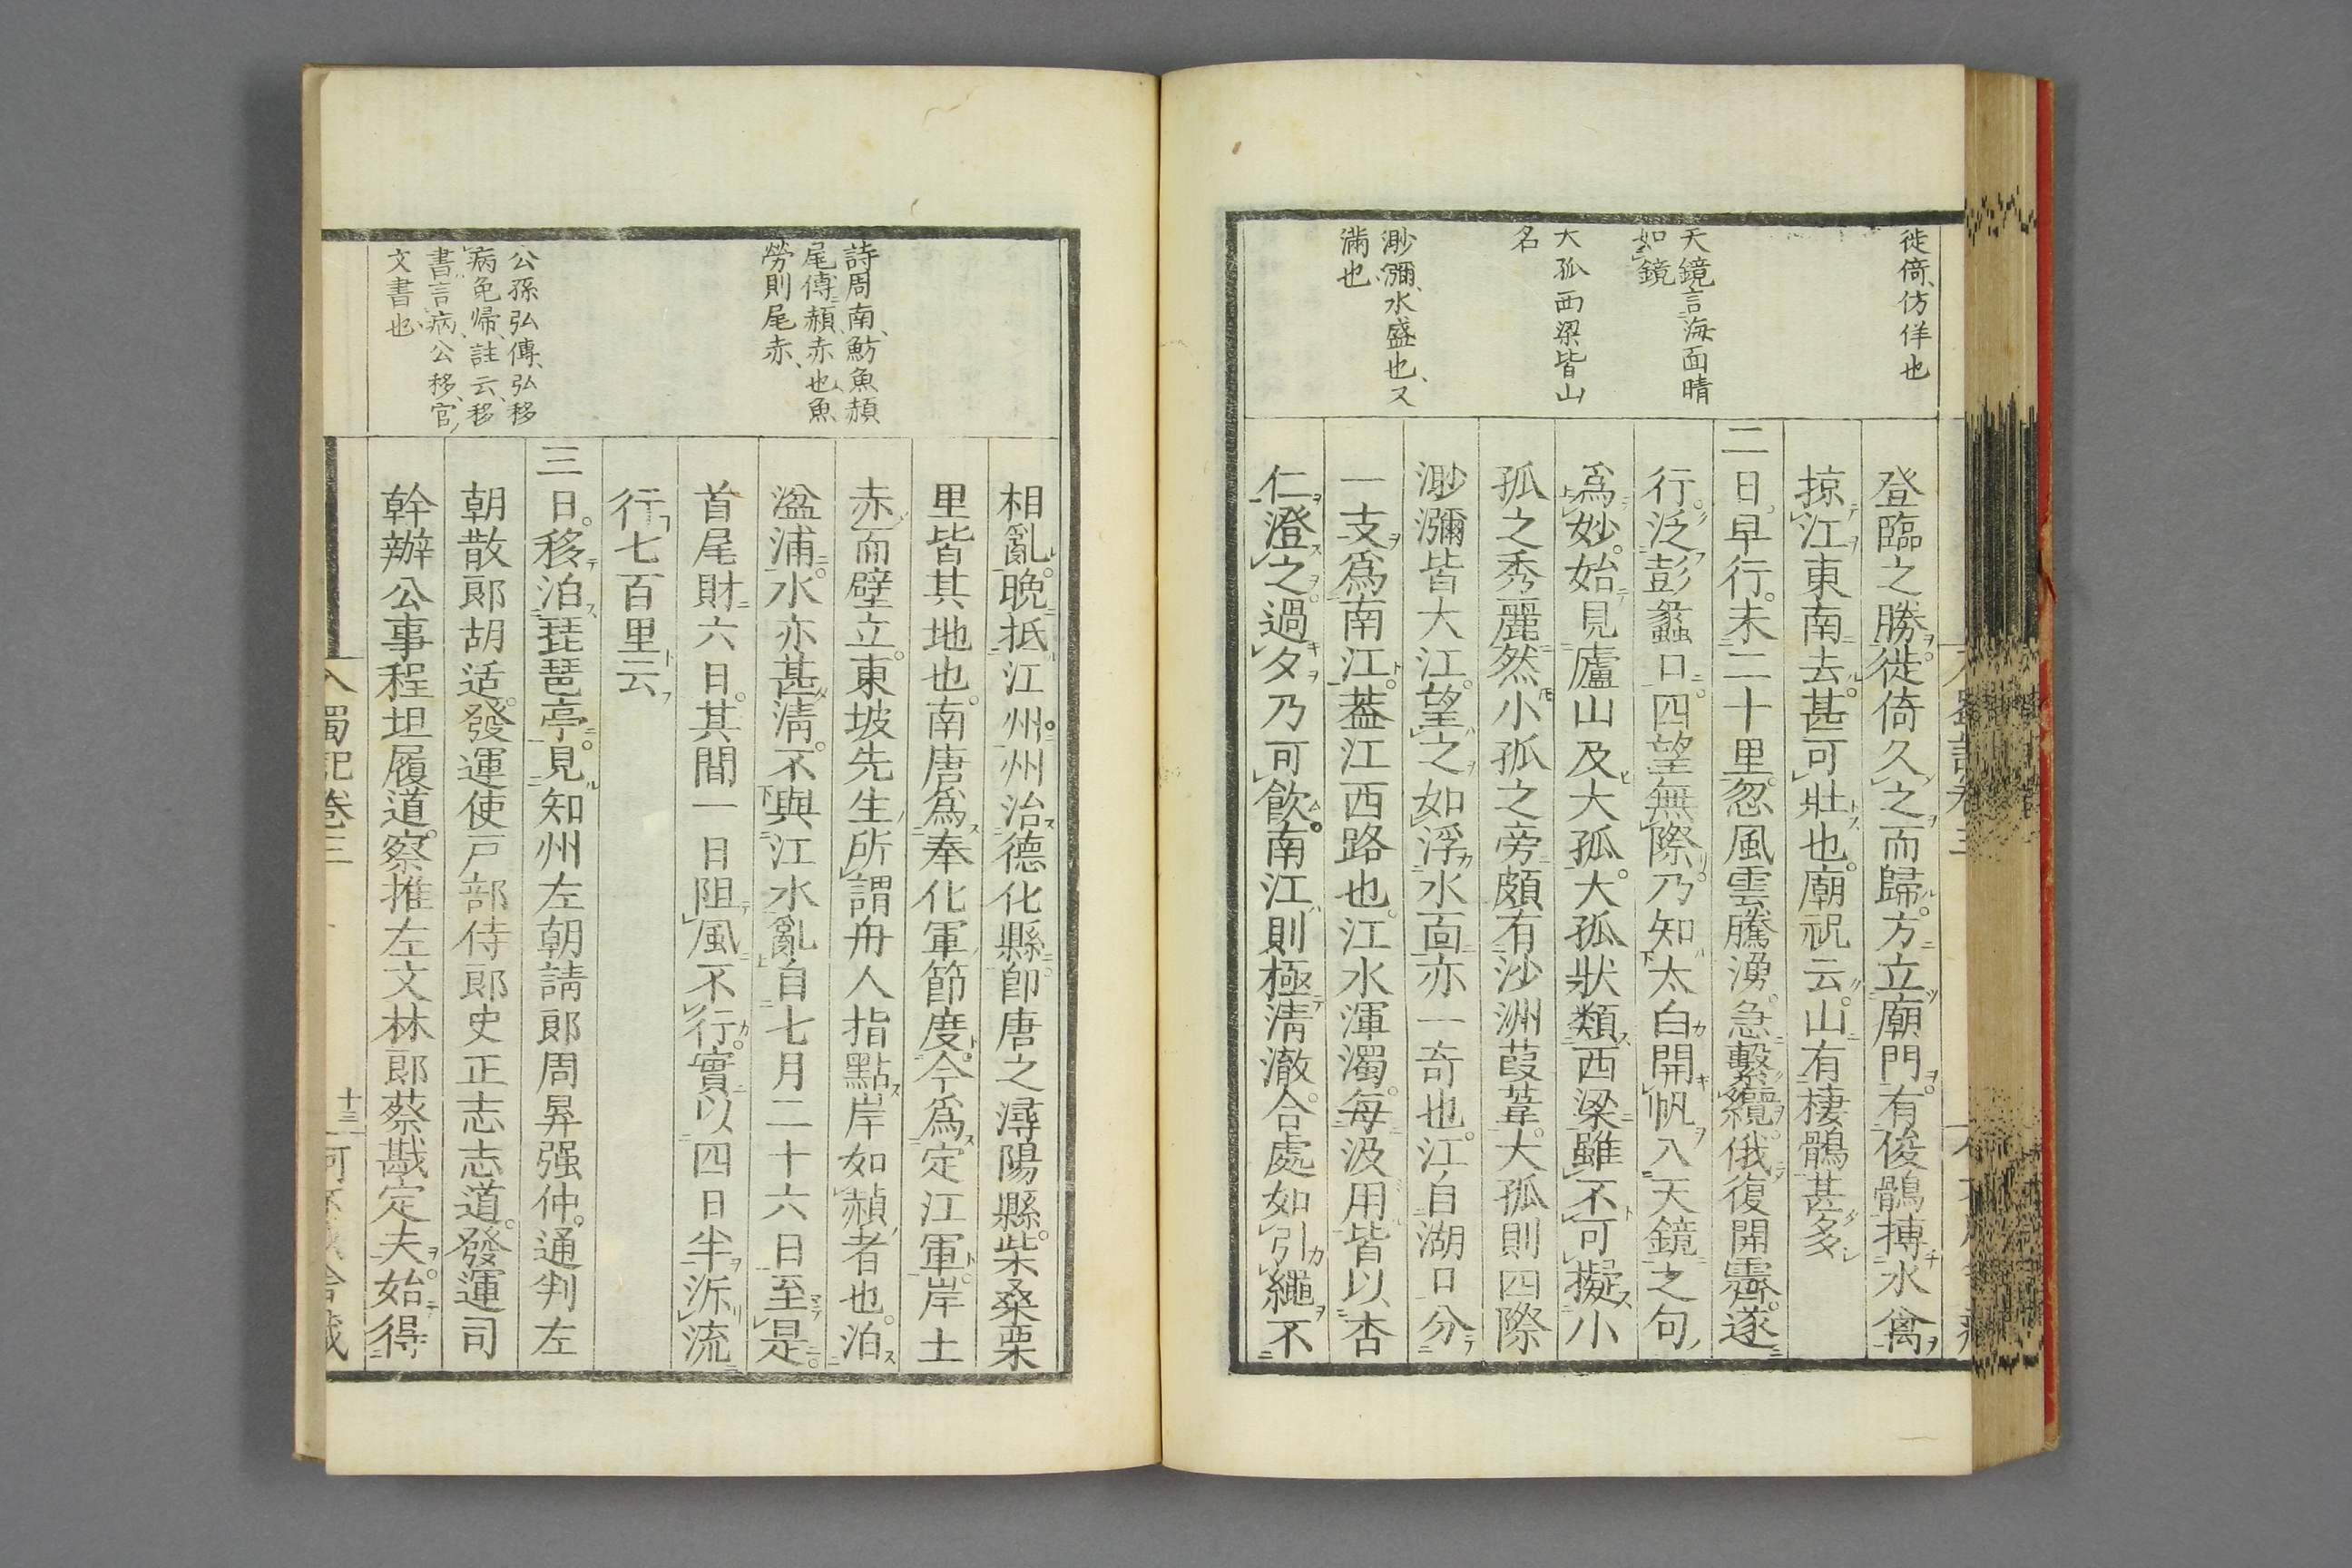 徙倚、仿佯也
天鏡言海面晴
如鏡
大孤西梁皆山
名
渺瀰、水盛也、又
滿也
登臨之勝徙倚久之而歸。方立廟門有俊鶻搏水禽
掠江東南去甚可壯也。廟祝云。山有棲鶻甚多
二日。早行。未二十里。忽風雲騰湧。急繫纜。俄復開霽。遂
行。泛彭蠡口。四望無際。乃知太白開帆入天鏡之句
爲妙。始見廬山及大孤。大孤狀類西梁雖不可擬小
孤之秀麗。然小孤之旁頗有沙洲葭葦。大孤則四際
渺瀰皆大江。望之如浮水面。亦一奇也。江自湖口分
一支爲南江。葢江西路也。江水渾濁。每汲用皆以杏
仁澄之。過夕乃可飲。南江則極淸澈。合處如引繩不
相亂。晚抵江州。州治德化縣。卽唐之潯陽縣。柴桑栗
里皆其地也。南唐爲奉化軍節度。今爲定江軍。岸土
赤而壁立。東坡先生所謂舟人指點岸如赬者也。泊
湓浦。水亦甚淸。不與江水亂。自七月二十六日至是。
首尾財六日。其間一日阻風不行。實以四日半泝流
行七百里云
三日。移泊琵琶亭。見知州左朝請郞周昇强仲。通判左
朝散郞胡适。發運使戸部侍郞史正志志道。發運司
幹辦公事程坦履道。察推左文林郞蔡戡定夫。始得
詩周南、魴魚赬
尾傳赬、赤也、魚
勞則尾赤、
公孫弘傳、弘移
病免帰、註云、移
書言病、公移、官
文書也
入蜀記卷三
十三